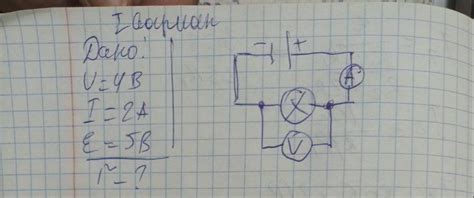 I вариан
Дано:
V=4В
I=2А
Ɛ=5В
r-?
- +
A
V